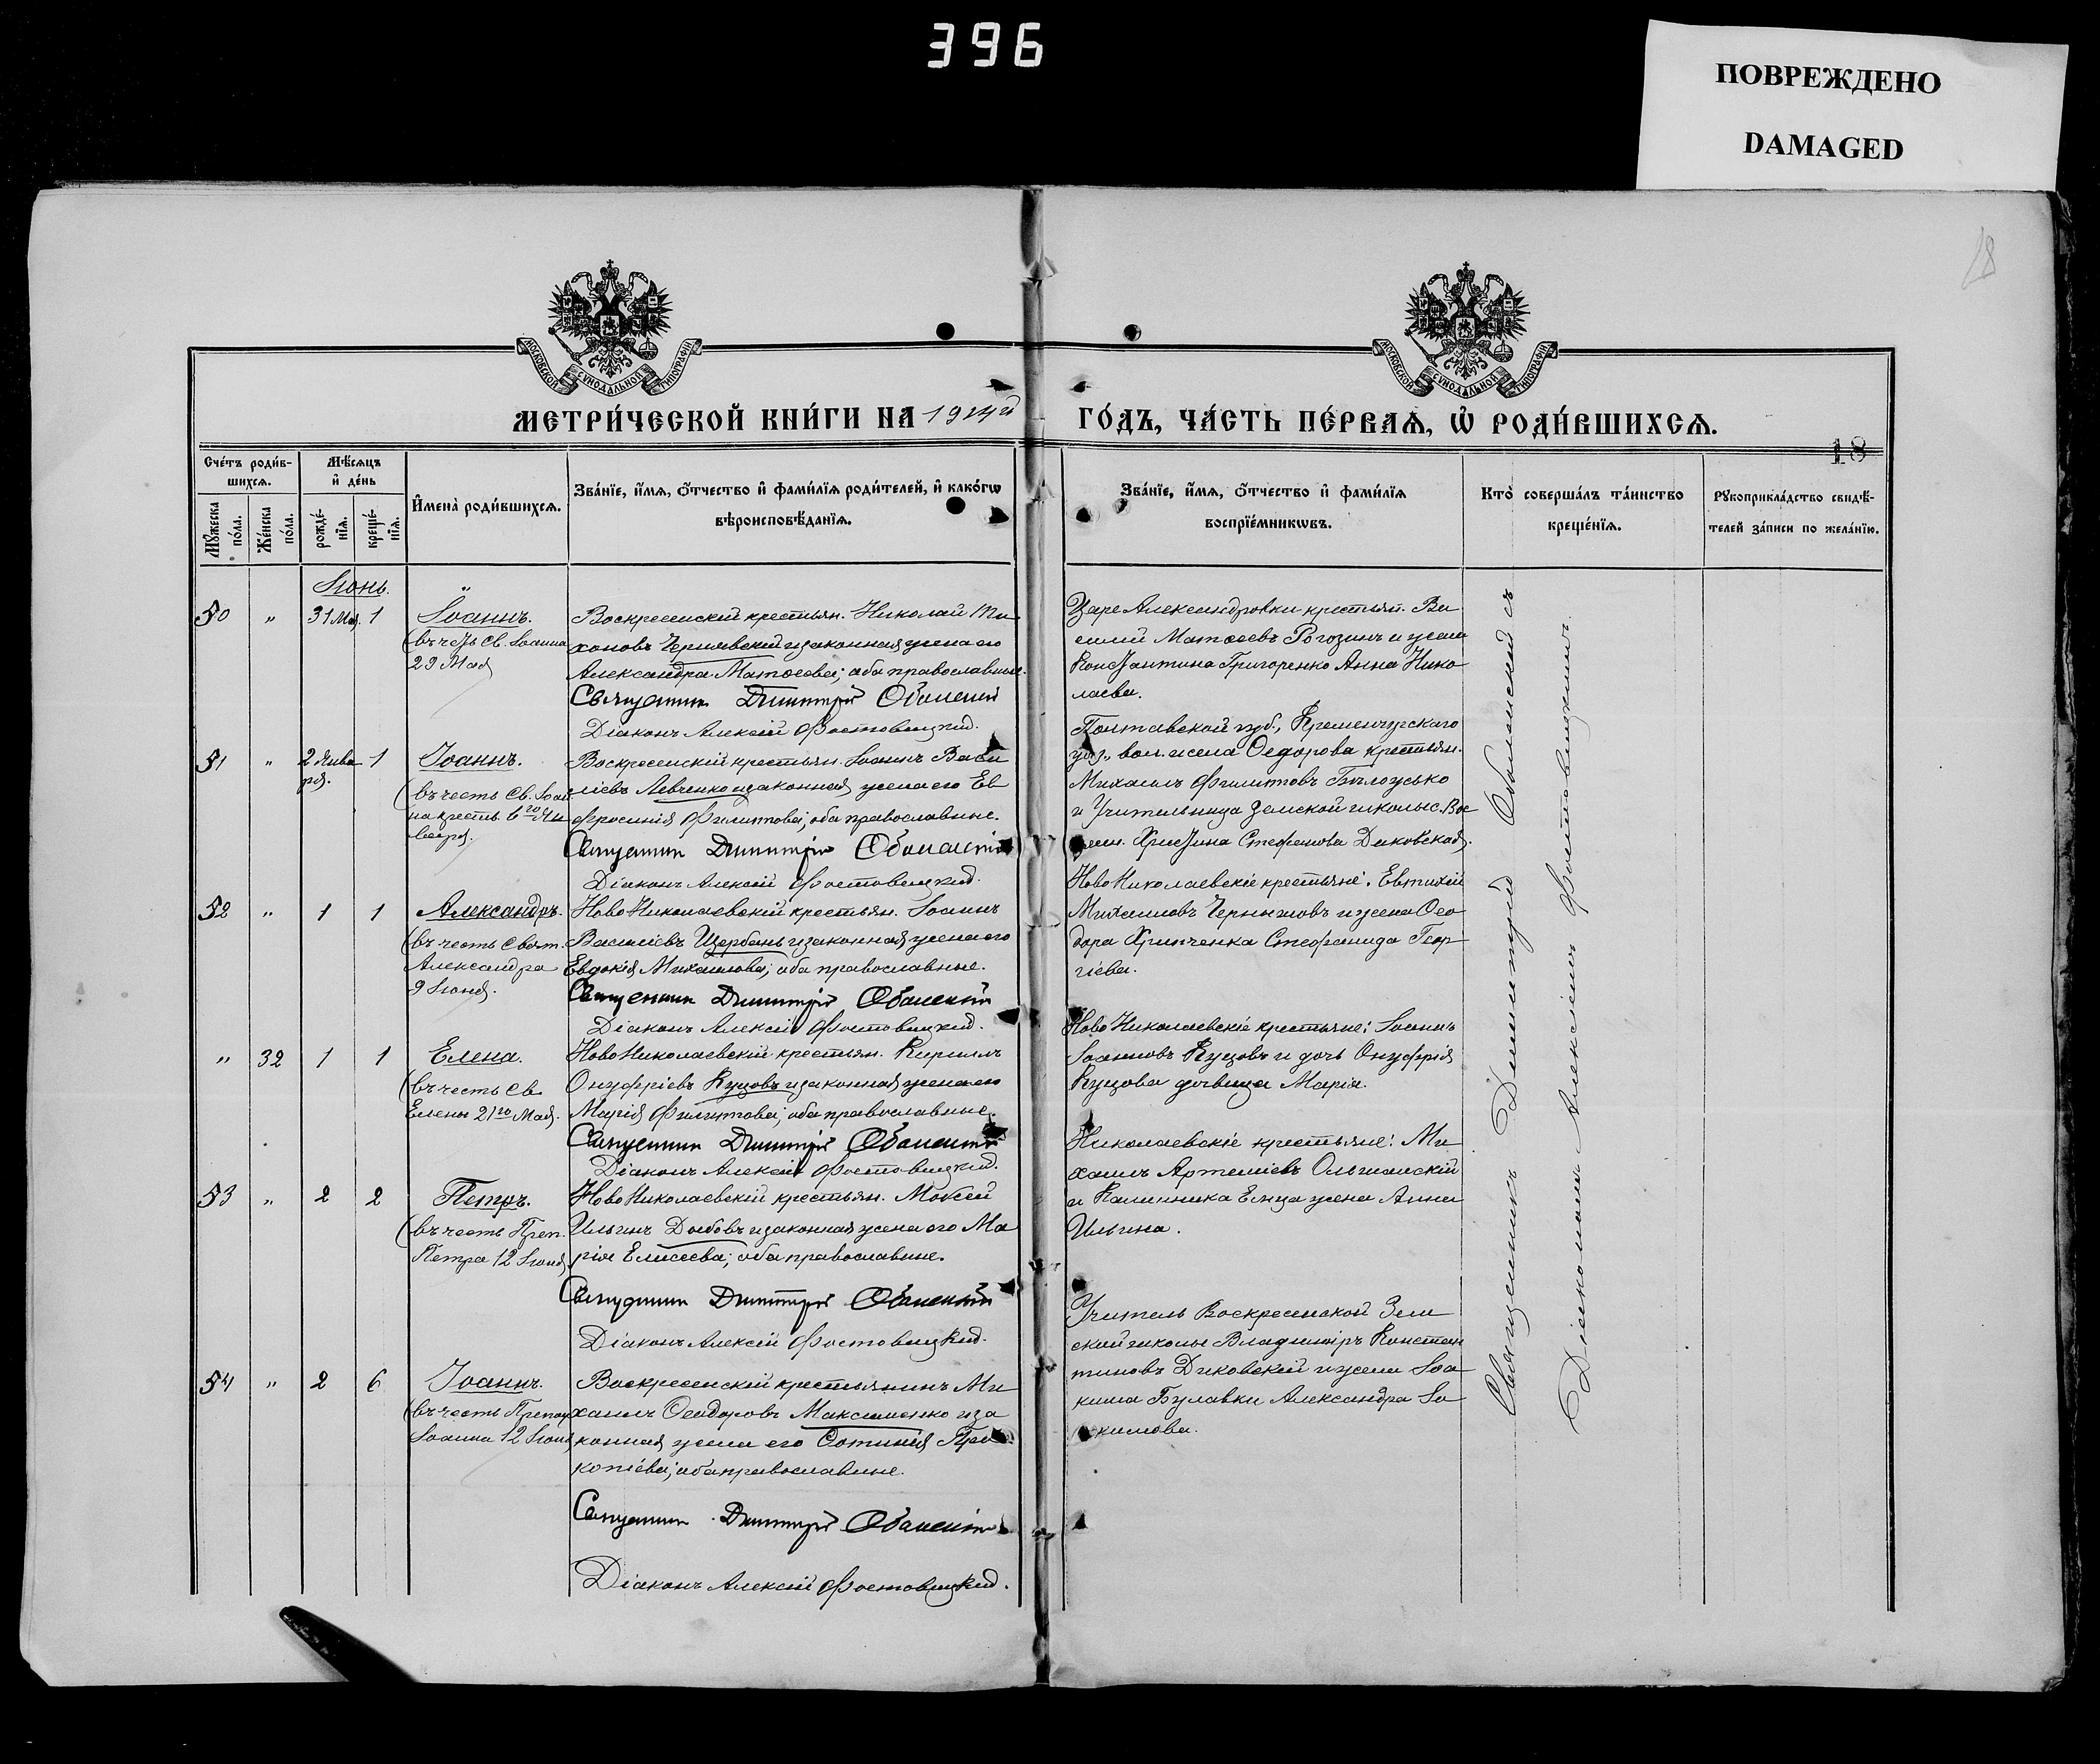 396
ПОВРЕЖДЕНО
DAMAGED
18
МОСКОВСКОЙ СѴНОДАЛЬНОЙ ТИПОГРАФІИ
МОСКОВСКОЙ СѴНОДАЛЬНОЙ ТИПОГРАФІИ
МЕТРИ́ЧЕСКОЙ КНИ́ГИ НА 1914й ГО́ДЪ, ЧА́СТЬ ПЕ́РВАѦ, Ѡ҆ РОДИ́ВШИХСѦ.
18
Сче́тъ роди́в-
шихсѧ.
Мѣ́сѧцъ
и҆ де́нь
Мꙋ́жеска
по́ла.
Же́нска
по́ла.
рожде́-
нїѧ.
креще́-
нїѧ.
И҆мена̀ роди́вшихсѧ.
Зва́нїе, и҆́мѧ, ѻ҆́тчество и҆ фами́лїѧ роди́телей, и҆ како́гѡ
вѣроисповѣ́данїѧ.
Зва́нїе, и҆́мѧ, ѻ҆́тчество и҆ фами́лїѧ
воспрїе́мникѡвъ.
Кто̀ соверша́лъ та́инство
креще́нїѧ.
Рꙋкоприкла́дство свидѣ́-
телей за́писи по жела́нїю.
Іюнь.
50 " 31 Мая 1 Іоаннъ.
(въ честь Св. Іоанна
29 Мая
Воскресенскій крестьян. Николай Ти
хоновъ Черневскій и законная жена его
Александра Матѳеева; оба православные.
Священник Димитрій Оболенскій
Діаконъ Алексій Фостовицкій.
Царе Александровки крестьян. Ва
силій Матѳеевъ Рогозинъ и жена
Константина Григоренко Анна Нико
лаева.
51 " 2 Янва
ря. 1 Іоаннъ.
(въ честь Св. Іоан
на крест. 6го Ян
варя.
Воскресенскій крестьян. Іоаннъ Васи
ліевъ Левченко и законная жена его Ев
фросинія Филиппова; оба православные.
Священник Димитрій Оболенскій
Діаконъ Алексій Фостовицкій.
Полтавской губ., Кременчугскаго
уез., вол. и села Ѳедорова крестьян.
Михаилъ Филипповъ Бѣлоусько
и Учительница Земской школы с. Вос
Христина Стефанова Диковская.
52 " 1 1 Александръ.
(въ честь Свят.
Александра
9 Іюня.
Ново Николаевскій крестьян. Іоаннъ
Василіевъ Щербань и законная жена его
Евдокія Михаилова; оба православные.
Священник Димитрій Оболенскій
Діаконъ Алексій Фостовицкій.
Ново Николаевскіе крестьяне: Евтихій
Михаиловъ Чернышовъ и жена Ѳео
дора Хрипченка Стефанида Геор
гіева.
" 32 1 1 Елена.
(въ честь Св.
Елены 21го Мая.
Ново Николаевскій крестьян. Кириллъ
Онуфріевъ Куцовъ и законная жена его
Марія Филиппова; оба православные.
Священник Димитрій Оболенскій
Діаконъ Алексій Фостовицкій.
Ново Николаевскіе крестьяне: Іоаннъ
Іоанновъ Куцовъ и дочь Онуфрія
Куцова дѣвица Марія.
53 " 2 2 Петръ.
(въ честь Преп.
Петра 12 Іюня
Ново Николаевскій крестьян. Моѵсей
Ильинъ Дыбовъ и законная жена его Ма
рія Елисеева; оба православные.
Священник Димитрій Оболенскій
Діаконъ Алексій Фостовицкій.
Николаевскіе крестьяне: Ми
хаилъ Артеміевъ Ольшанскій
и Калинника Емца жена Анна
Ильина.
54 " 2 6 Іоаннъ.
(въ честь Препод
Іоанна 12 Іюня
Воскресенскій крестьянинъ Ми
хаилъ Ѳеодоровъ Максименко и за
конная жена его Фотинія Про
копіева; оба православные.
Священник Димитрій Оболенскій
Діаконъ Алексій Фостовицкій.
Учитель Воскресенской Зем
ской школы Владиміръ Констан
тиновъ Диковскій и жена Іоа
кима Булавки Александра Іо
кимова.
Священникъ Димитрій Оболенскій съ
Діакономъ Алексіемъ Фостовицкимъ.